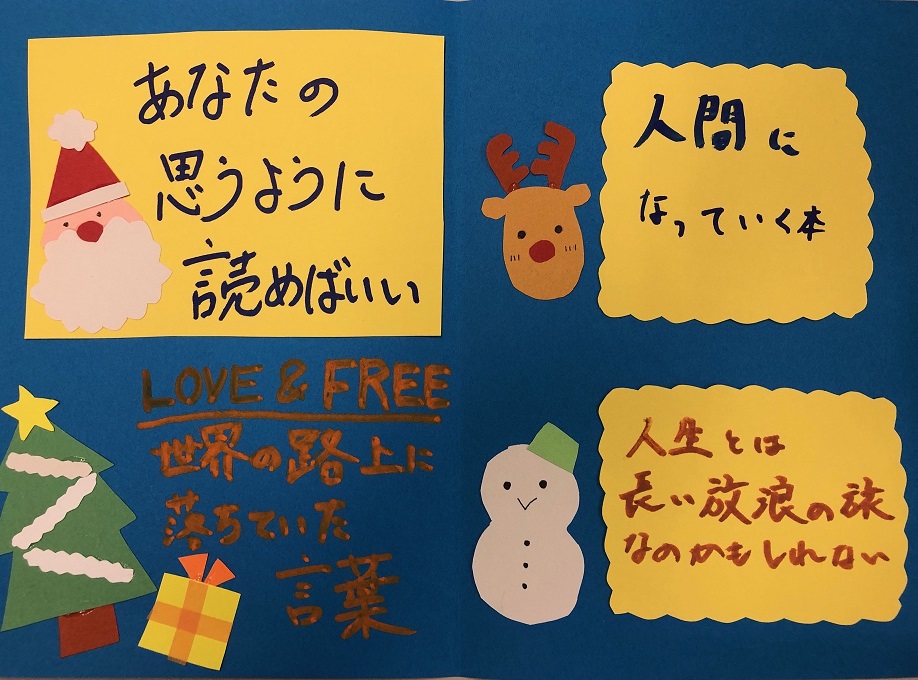 あなたの
思うように
読めばいい
LOVE & FREE
世界の路上に
落ちていた
言葉
人間に
なっていく本
人生とは
長い放浪の旅
なのかもしれない